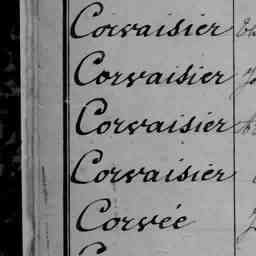 Corvaisier
Corvaisier
Corvaisier
Corvaisier
Corvée